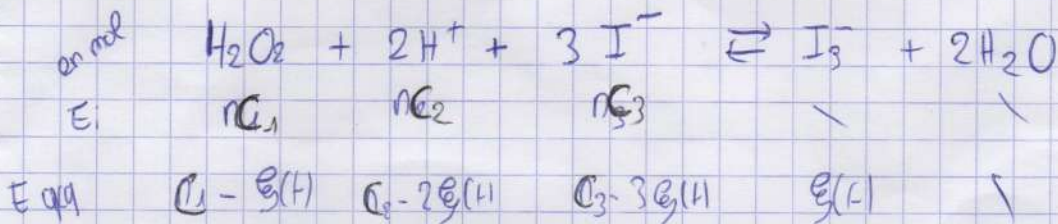 en mol H₂O₂ + 2H⁺ + 3 I⁻ ⇄ I₃⁻ + 2H₂O
Ei C₁ C₂ C₃ \ \
C₁ - ξ(t) C₂ - 2ξ(t) C₃ - 3ξ(t) ξ(t) \